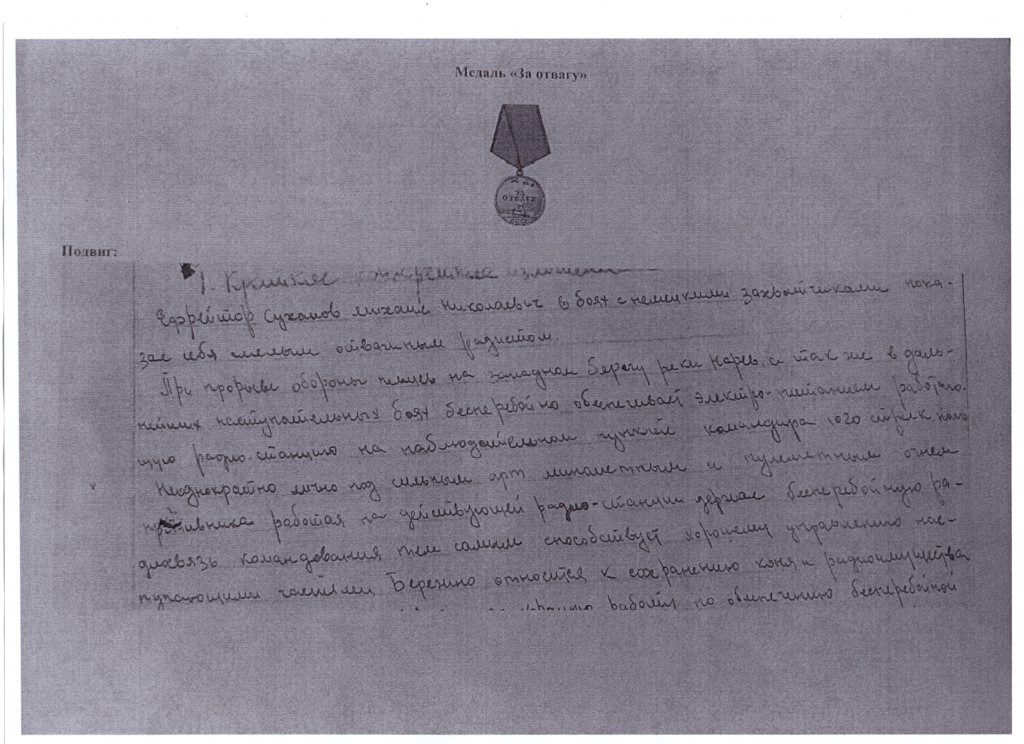 Медаль «За отвагу»
ЗА
ОТВАГУ
Подвиг:
1. Краткое конкретное изложение
Ефрейтор Суханов михаил Николаевич в боях с немецкими захватчиками пока-
зал себя смелым отважным радистом.
При прорыве обороны немцев на западном берегу реки нарев, а так же в даль-
нейших наступательных боях бесперебойно обеспечивает электро-питанием работаю-
щую радио-станцию на наблюдательном пункте командира 1020 стрелк.
Неоднократно лично под сильным арт. минометным и пулеметным огнем
противника работая на действующей радио-станции держал бесперебойную ра-
диосвязь командования тем самым способствует хорошему управлению нас-
тупающими частями. Бережно относится к сохранению коня и радиоимущества
работу по обеспечению бесперебойной